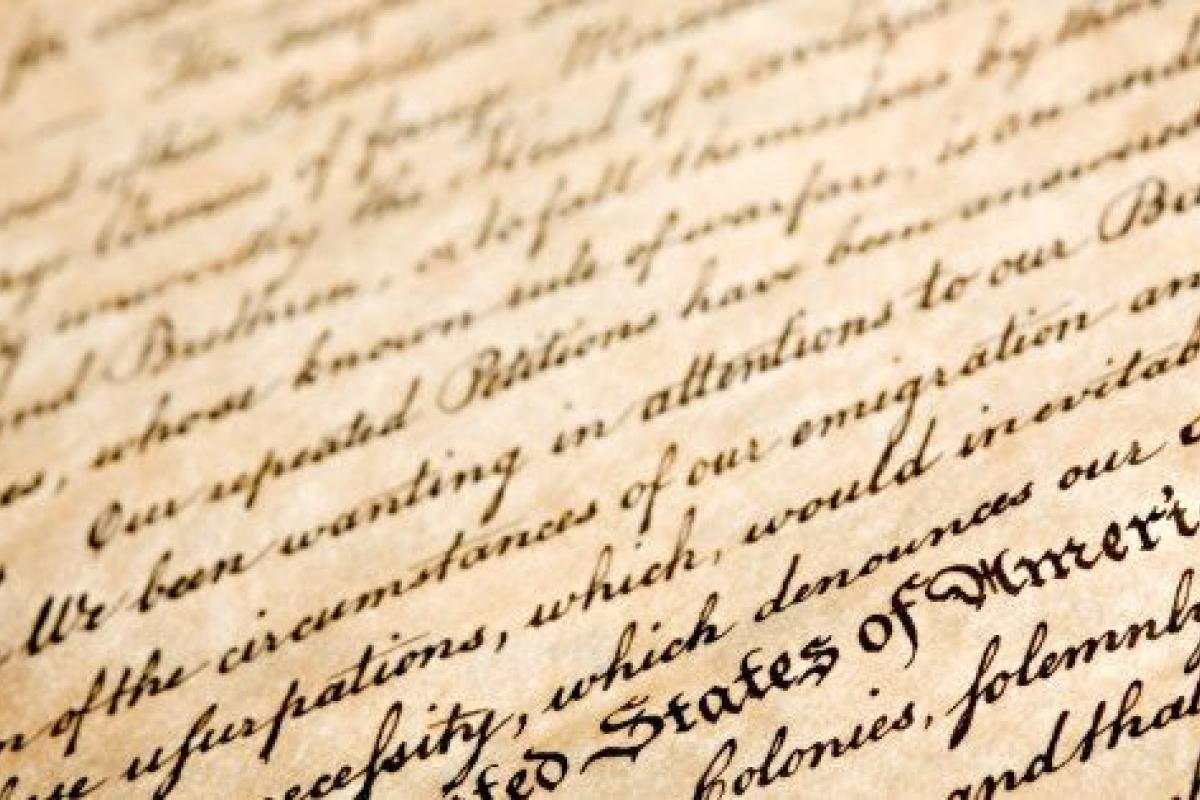 of foreign
unworthy the Head of a civilized
and Brethren, or to fall themselves by their
es, whose known rule of warfare, is an undi
Our repeated Petitions have been answered
We been wanting in attentions to our B
n of the circumstances of our emigration an
uſurpations, which, would inevitab
eceſsity, which denounces our
ted States of Ameri
Colonies, ſolemnl
and that